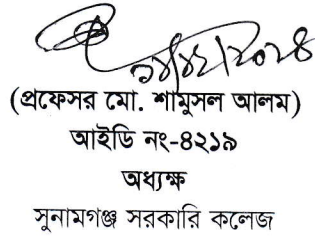 ১৪/১২/২০২৪
(প্রফেসর মো. শামুসল আলম)
আইডি নং-৪২১৯
অধ্যক্ষ
সুনামগঞ্জ সরকারি কলেজ